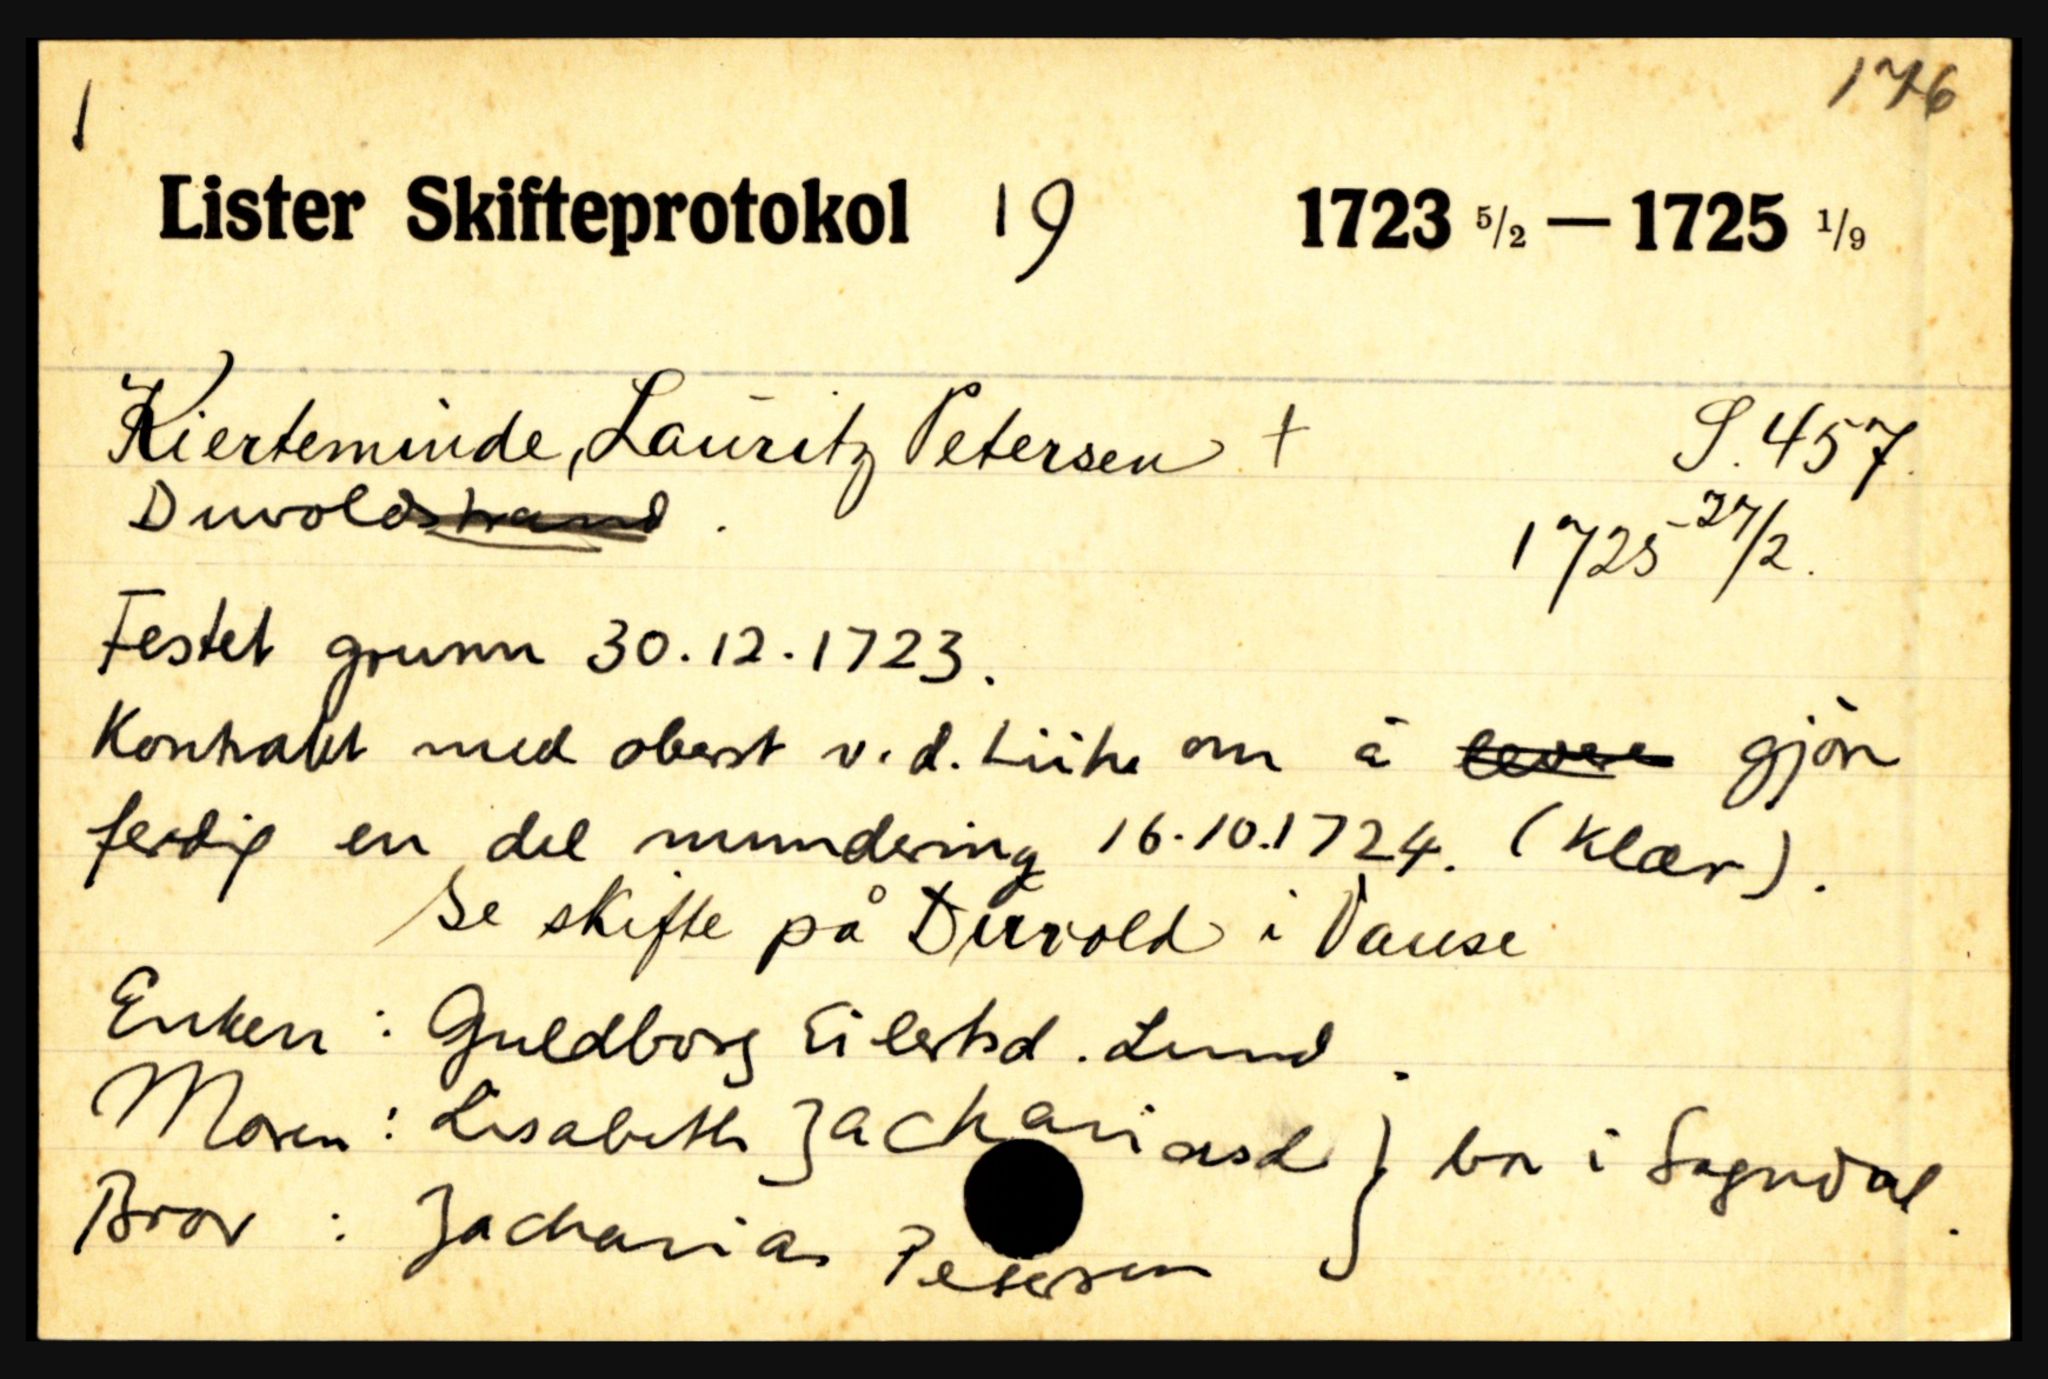 1 176
Lister Skifteprotokol 19 1723 5/2 — 1725 1/9
Kierteminde, Lauritz Petersen † S. 457.
Duvoldstrand. 1725 - 27/2.
Festet grunn 30.12.1723.
Kontrakt med oberst v. d. Lühe om å levere gjöre
ferdig en del mundering 16.10.1724. (Klær).
Se skifte på Duvold i Vanse
Enken : Guldborg Eilertsd. Lund.
Moren : Lisabeth Zachariasd } bor i Sogndal.
Bror : Zacharias Petersen